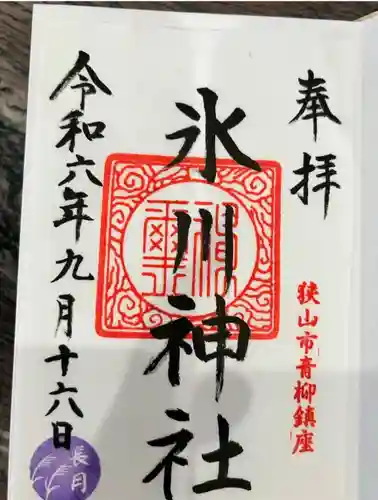 奉拝
狭山市青柳鎮座
氷川神社
令和六年九月十六日
長月